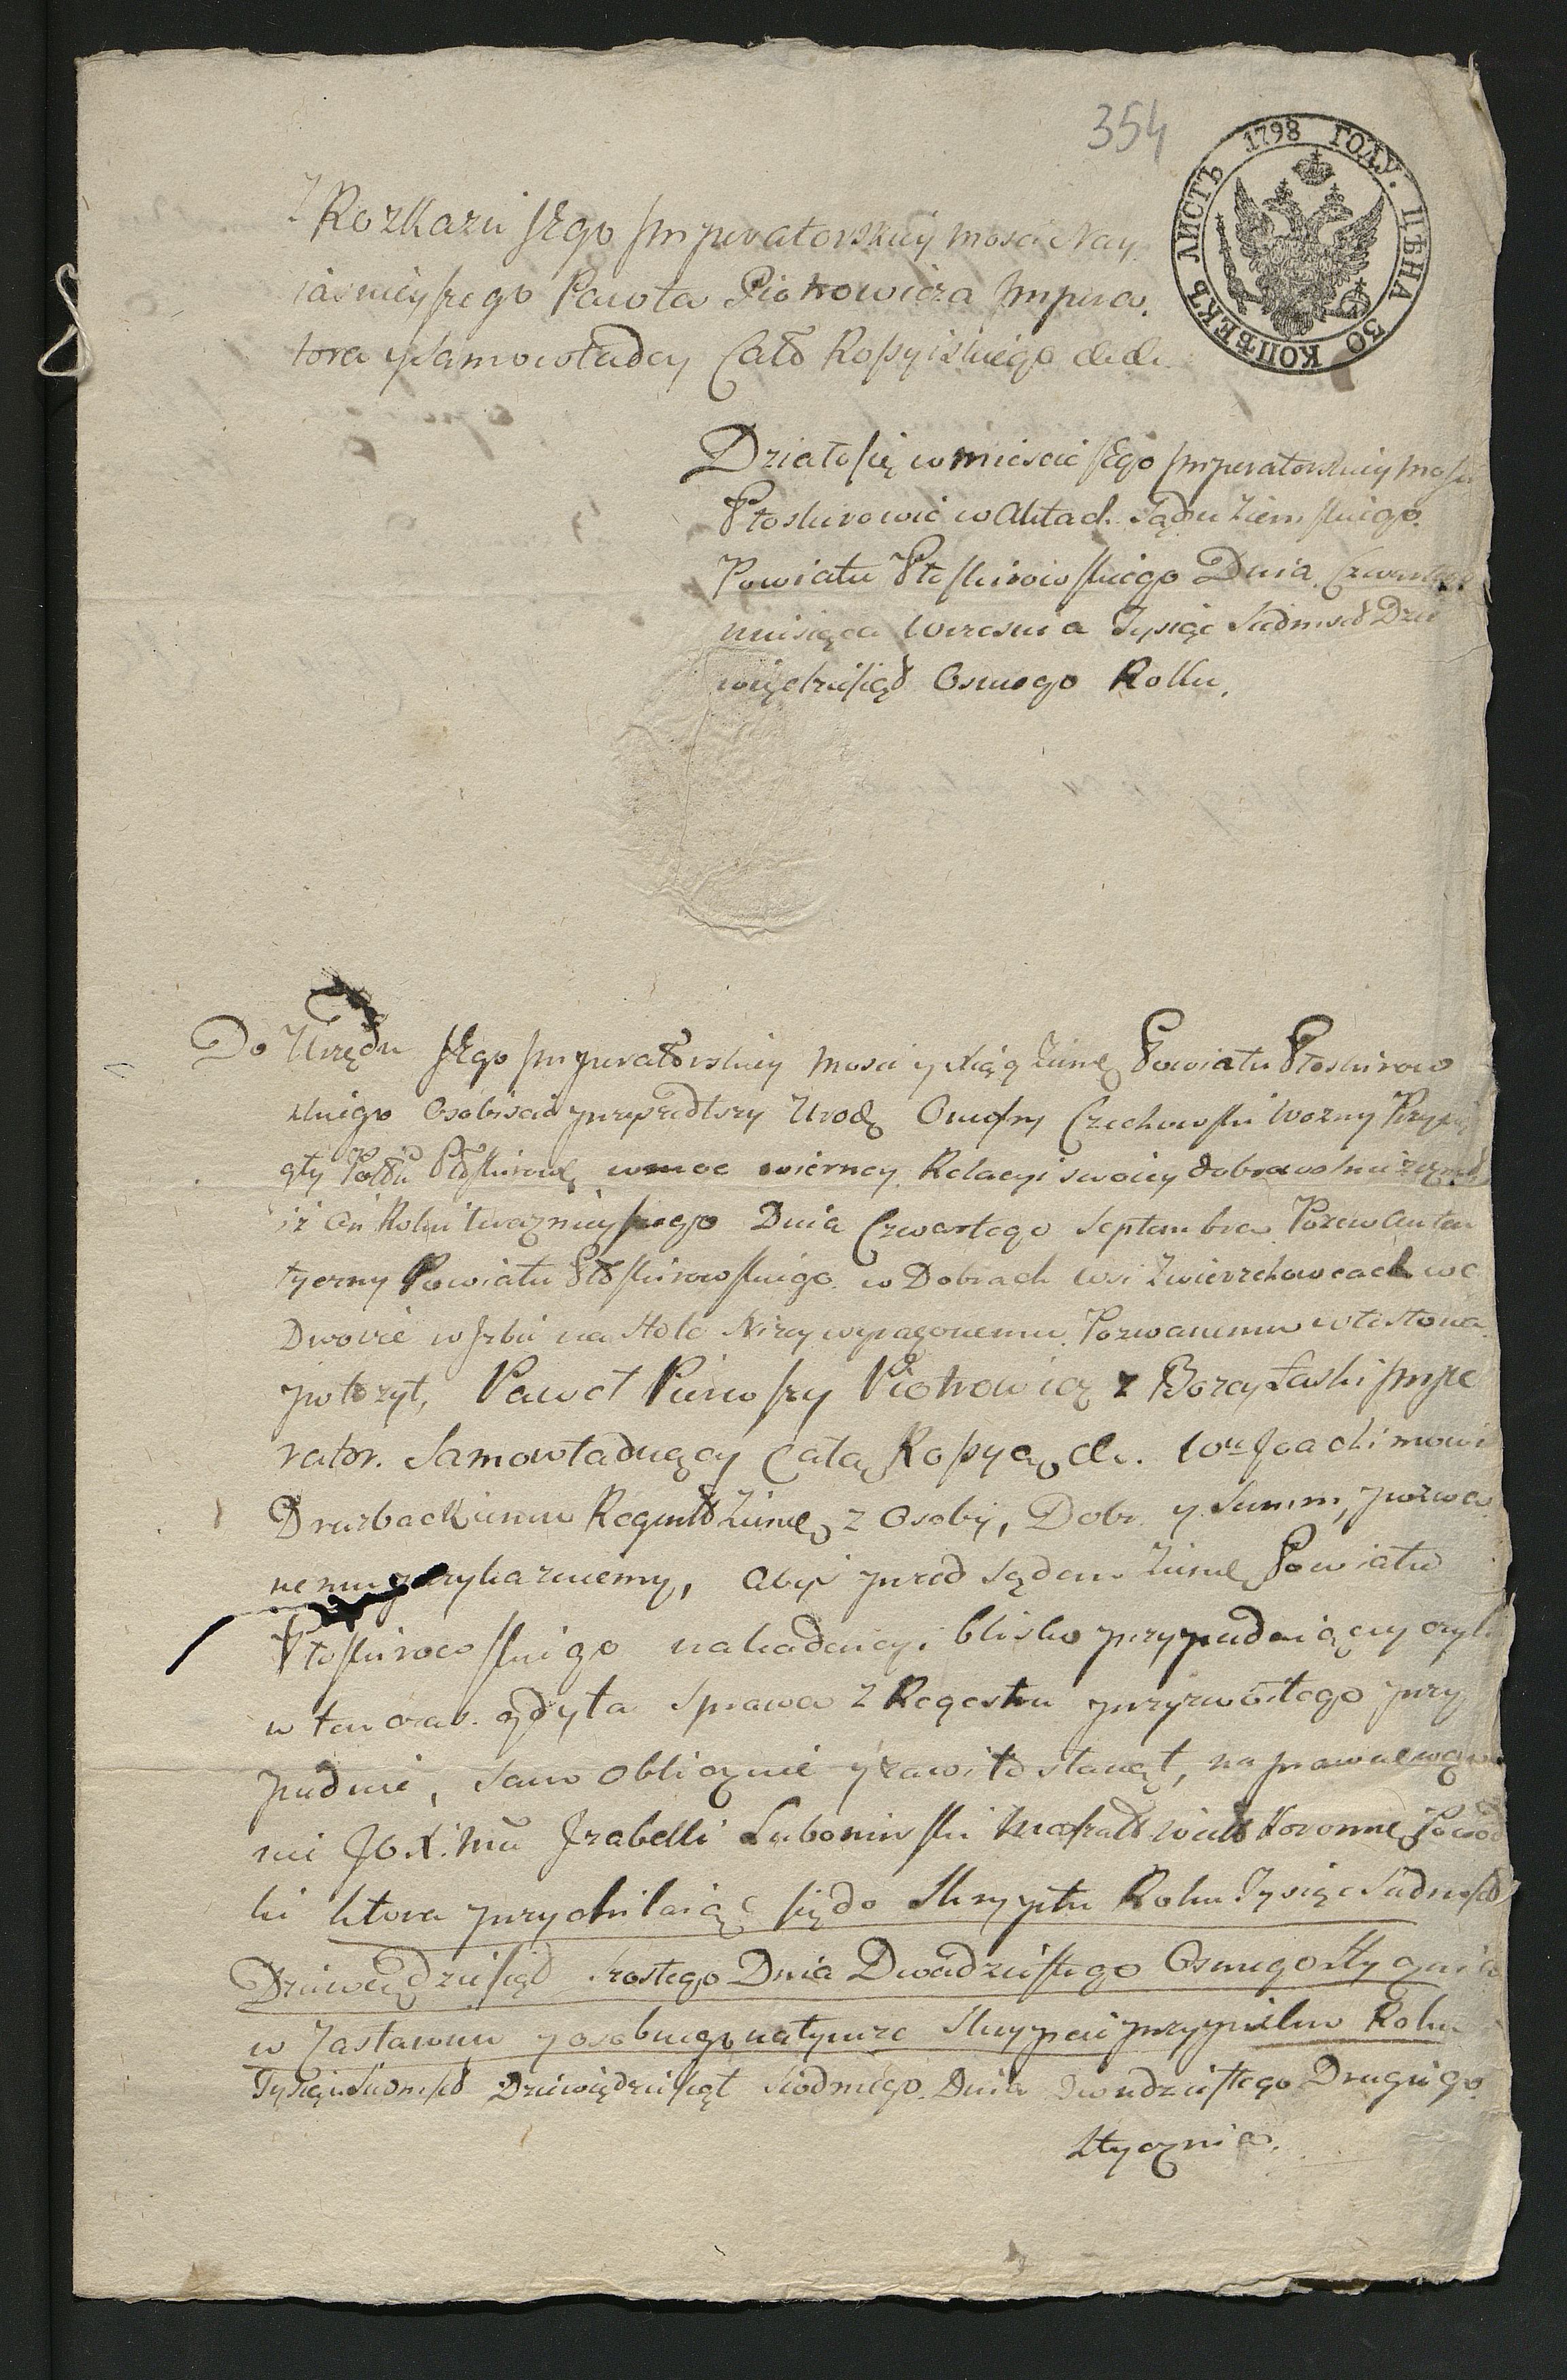 354
ЛИСТЪ 1798 ГОДУ. ЦѢНА 30 КОПѢЕКЪ
Z Rozkazu JEgo Imperatorskiey mosci Nay
iasnieyszego Pawła Piotrowicza Impera
tora y Samowładcy Całő Rossyiskiego &c &c
Działo się w miescie JEgo Imperatorskiey mosci
Płoskirowie w Aktach Sądu Ziemskiego
Powiatu Płoskirowskiego Dnia Czwartego
miesiąca Wrzesnia Tysiąc Siedmset Dzie
więdziesiąt Osmego Roku.
Do Urzędu JEgo Imperatorskiey mosci y Xiąg Ziems Powiatu Płoskirow
skiego Osobiscie przyszedłszy Urodz Onufry Czechowski Wozny Przysię
gły Pottu Płoskirows w moc wierney Relacyi swoiey dobrowolnie zeznał
iż On Roku teraznieyszego Dnia Czwartego Septembra Pozew Auten
tyczny Powiatu Płoskirowskiego w Dobrach Wsi Zwierzchowcach we
Dworze w Izbie na Stole Nizey wyrazonemu Pozwanemu
połozył, Paweł Pierwszy Piotrowicz z Bozey Łaski Impe
rator Samowładnący Całą Rossyą &c. Wu Joachimowi
Druzbackiemu Regent Ziems z Osoby, Dobr y Summ, pozwa
nemu przykazuiemy, abyś przed Sądem Ziems Powiatu
Płoskirowskiego na kadencyi blisko przypadaiącey czyli
w ten czas gdy ta Sprawa z Regestru przyzwoitego przy
padnie, Sam Oblicznie y zawito stanął, na prawne
nie JO. X. Mci Izabelli Lubomirski Marszałt Wielt Koronne Powod
ki ktora przychilaiąc się do Skryptu Roku Tysiąc Siedmset
Dziewiędziesiąt Szostego Dnia Dwadziestego Osmego Stycznia
w Zastawiu y osobnego na tymze Skrypcie przypisku Roku
Tysiąc Siedmset Dziewiędziesiąt Siodmego Dnia Dwudziestego Drugiego
Stycznia.